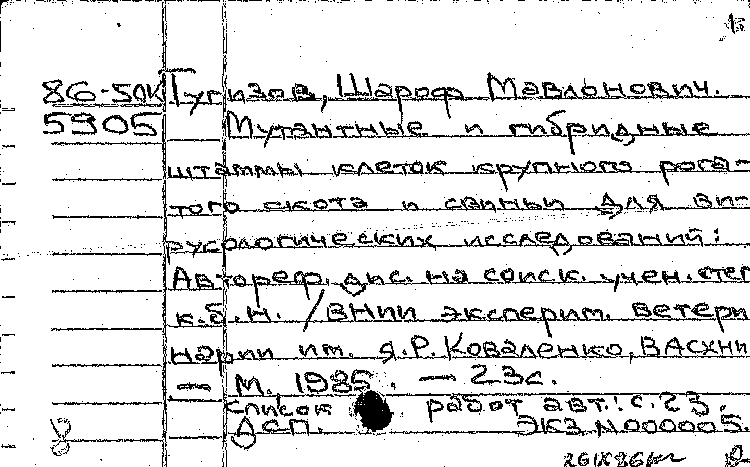 86-50К Тугизов, Шароф Мавлонович.
5905 Мутантные и гибридные
штаммы клеток крупного рога-
того скота и свиньи для ви-
русологических исследований:
Автореф. дис. на соиск. учен. степ
к.б.н. / ВНИИ эксперим. ветери
нарии им. Я.Р. Коваленко, ВАСХНИ
— М., 1985. — 23с.
Список работ авт.: с. 23.
ДСП. ЭКЗ N000005.